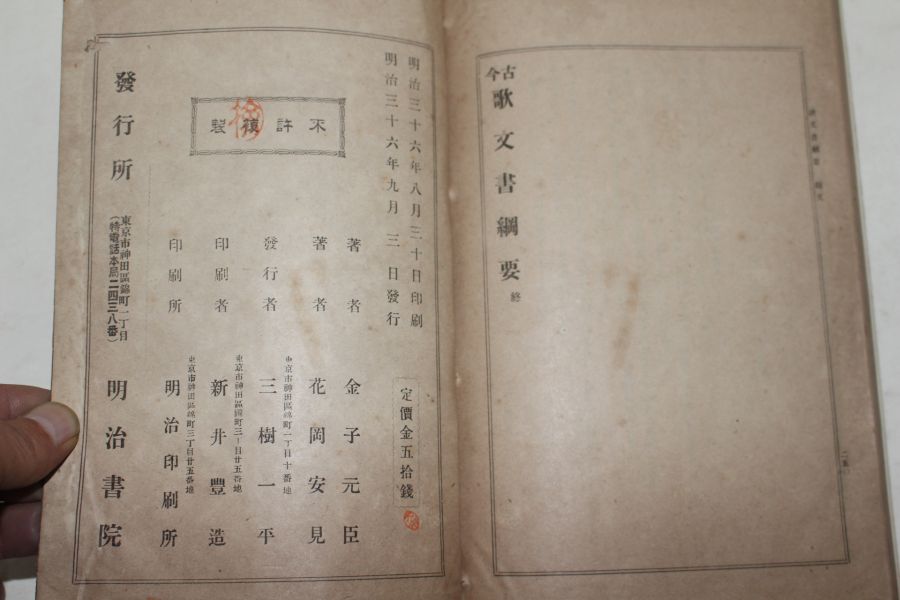 古今歌文書綱要 終
明治三十六年八月三十日印刷
明治三十六年九月三日發行
定價金五拾錢
不許複製
著者 金子元臣
著者 花岡安見
發行者 東京市神田區錦町一丁目十番地 三樹一平
印刷者 東京市神田區錦町三丁目廿五番地 新井豐造
印刷所 東京市神田區錦町三丁目廿五番地 明治印刷所
發行所 東京市神田區錦町一丁目 明治書院
(特電話本局二四三八番)